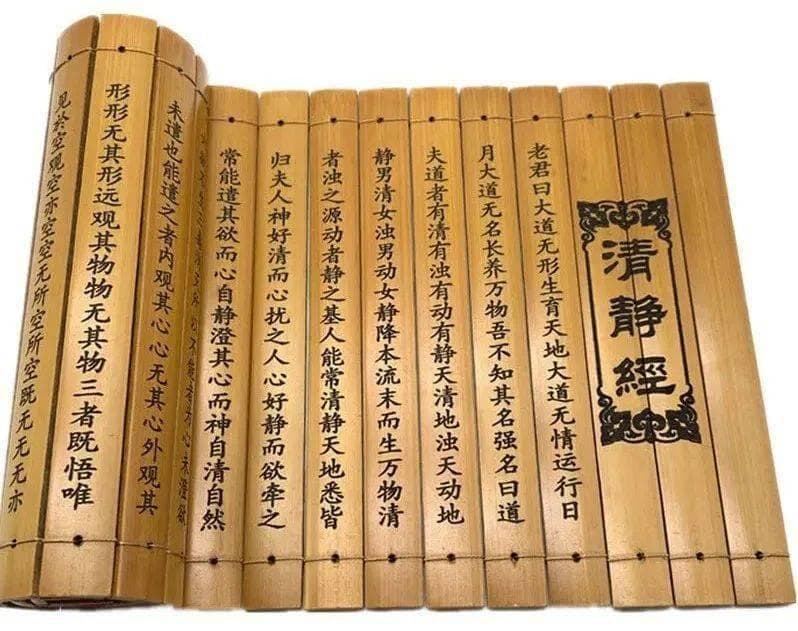 清静經
老君曰大道无形生育天地大道无情运行日
月大道无名长养万物吾不知其名强名曰道
夫道者有清有浊有动有静天清地浊天动地
静男清女浊男动女静降本流末而生万物清
者浊之源动者静之基人能常清静天地悉皆
归夫人神好清而心扰之人心好静而欲牵之
常能遣其欲而心自静澄其心而神自清自然
不能者为心未澄欲
未遣也能遣之者内观其心心无其心外观其
形形无其形远观其物物无其物三者既悟唯
见於空观空亦空空无所空所空既无无无亦